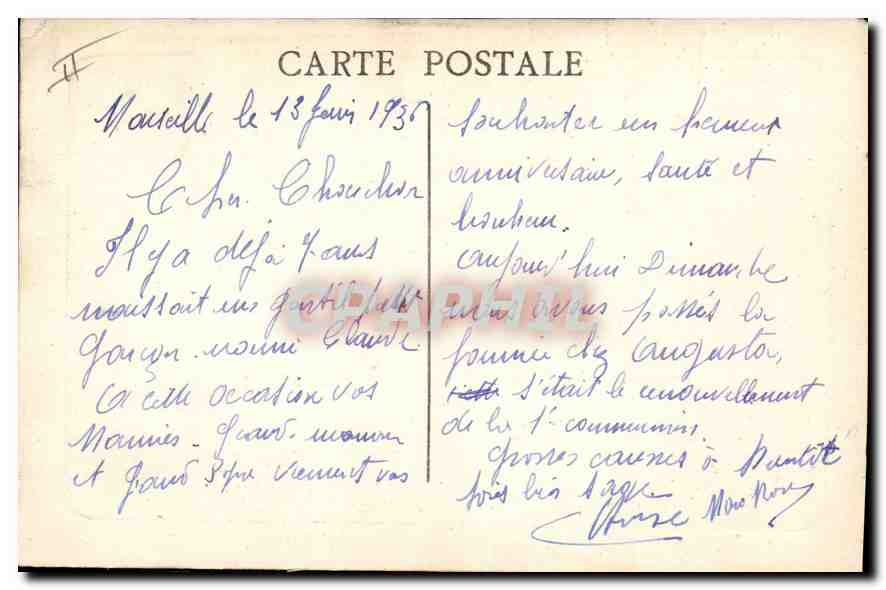 II
CARTE POSTALE
Marseille le 13 1936
Cher Chouchou
Il y a déjà 7 ans
naissait un gentil petit
Garçon nommé Claude
A cette occasion vos
Mamies. Grand-maman
et Grand Père viennent vos
souhaiter un heureux
anniversaire, santé et
bonheur.
Aujourd'hui Dimanche
nous avons passés la
journée chez Augusta,
s'était le renouvellement
de la 1re communion
Grosses caresses à Bientôt
sois bien sage
CPAPHIL